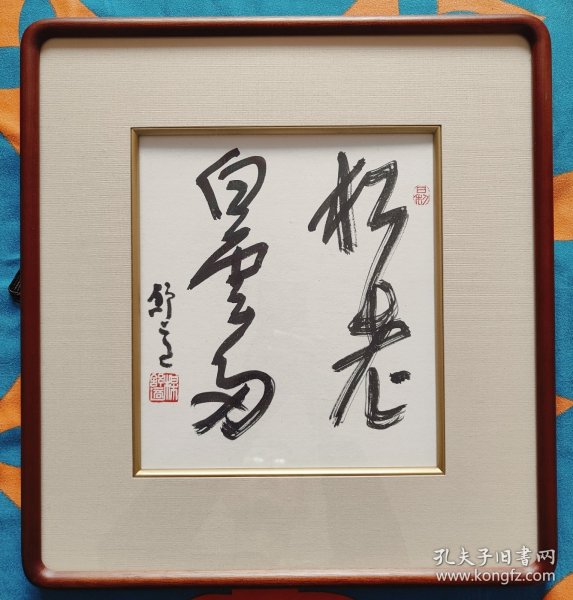 松老
白雲多
舒道
孔夫子旧书网
www.kongfz.com